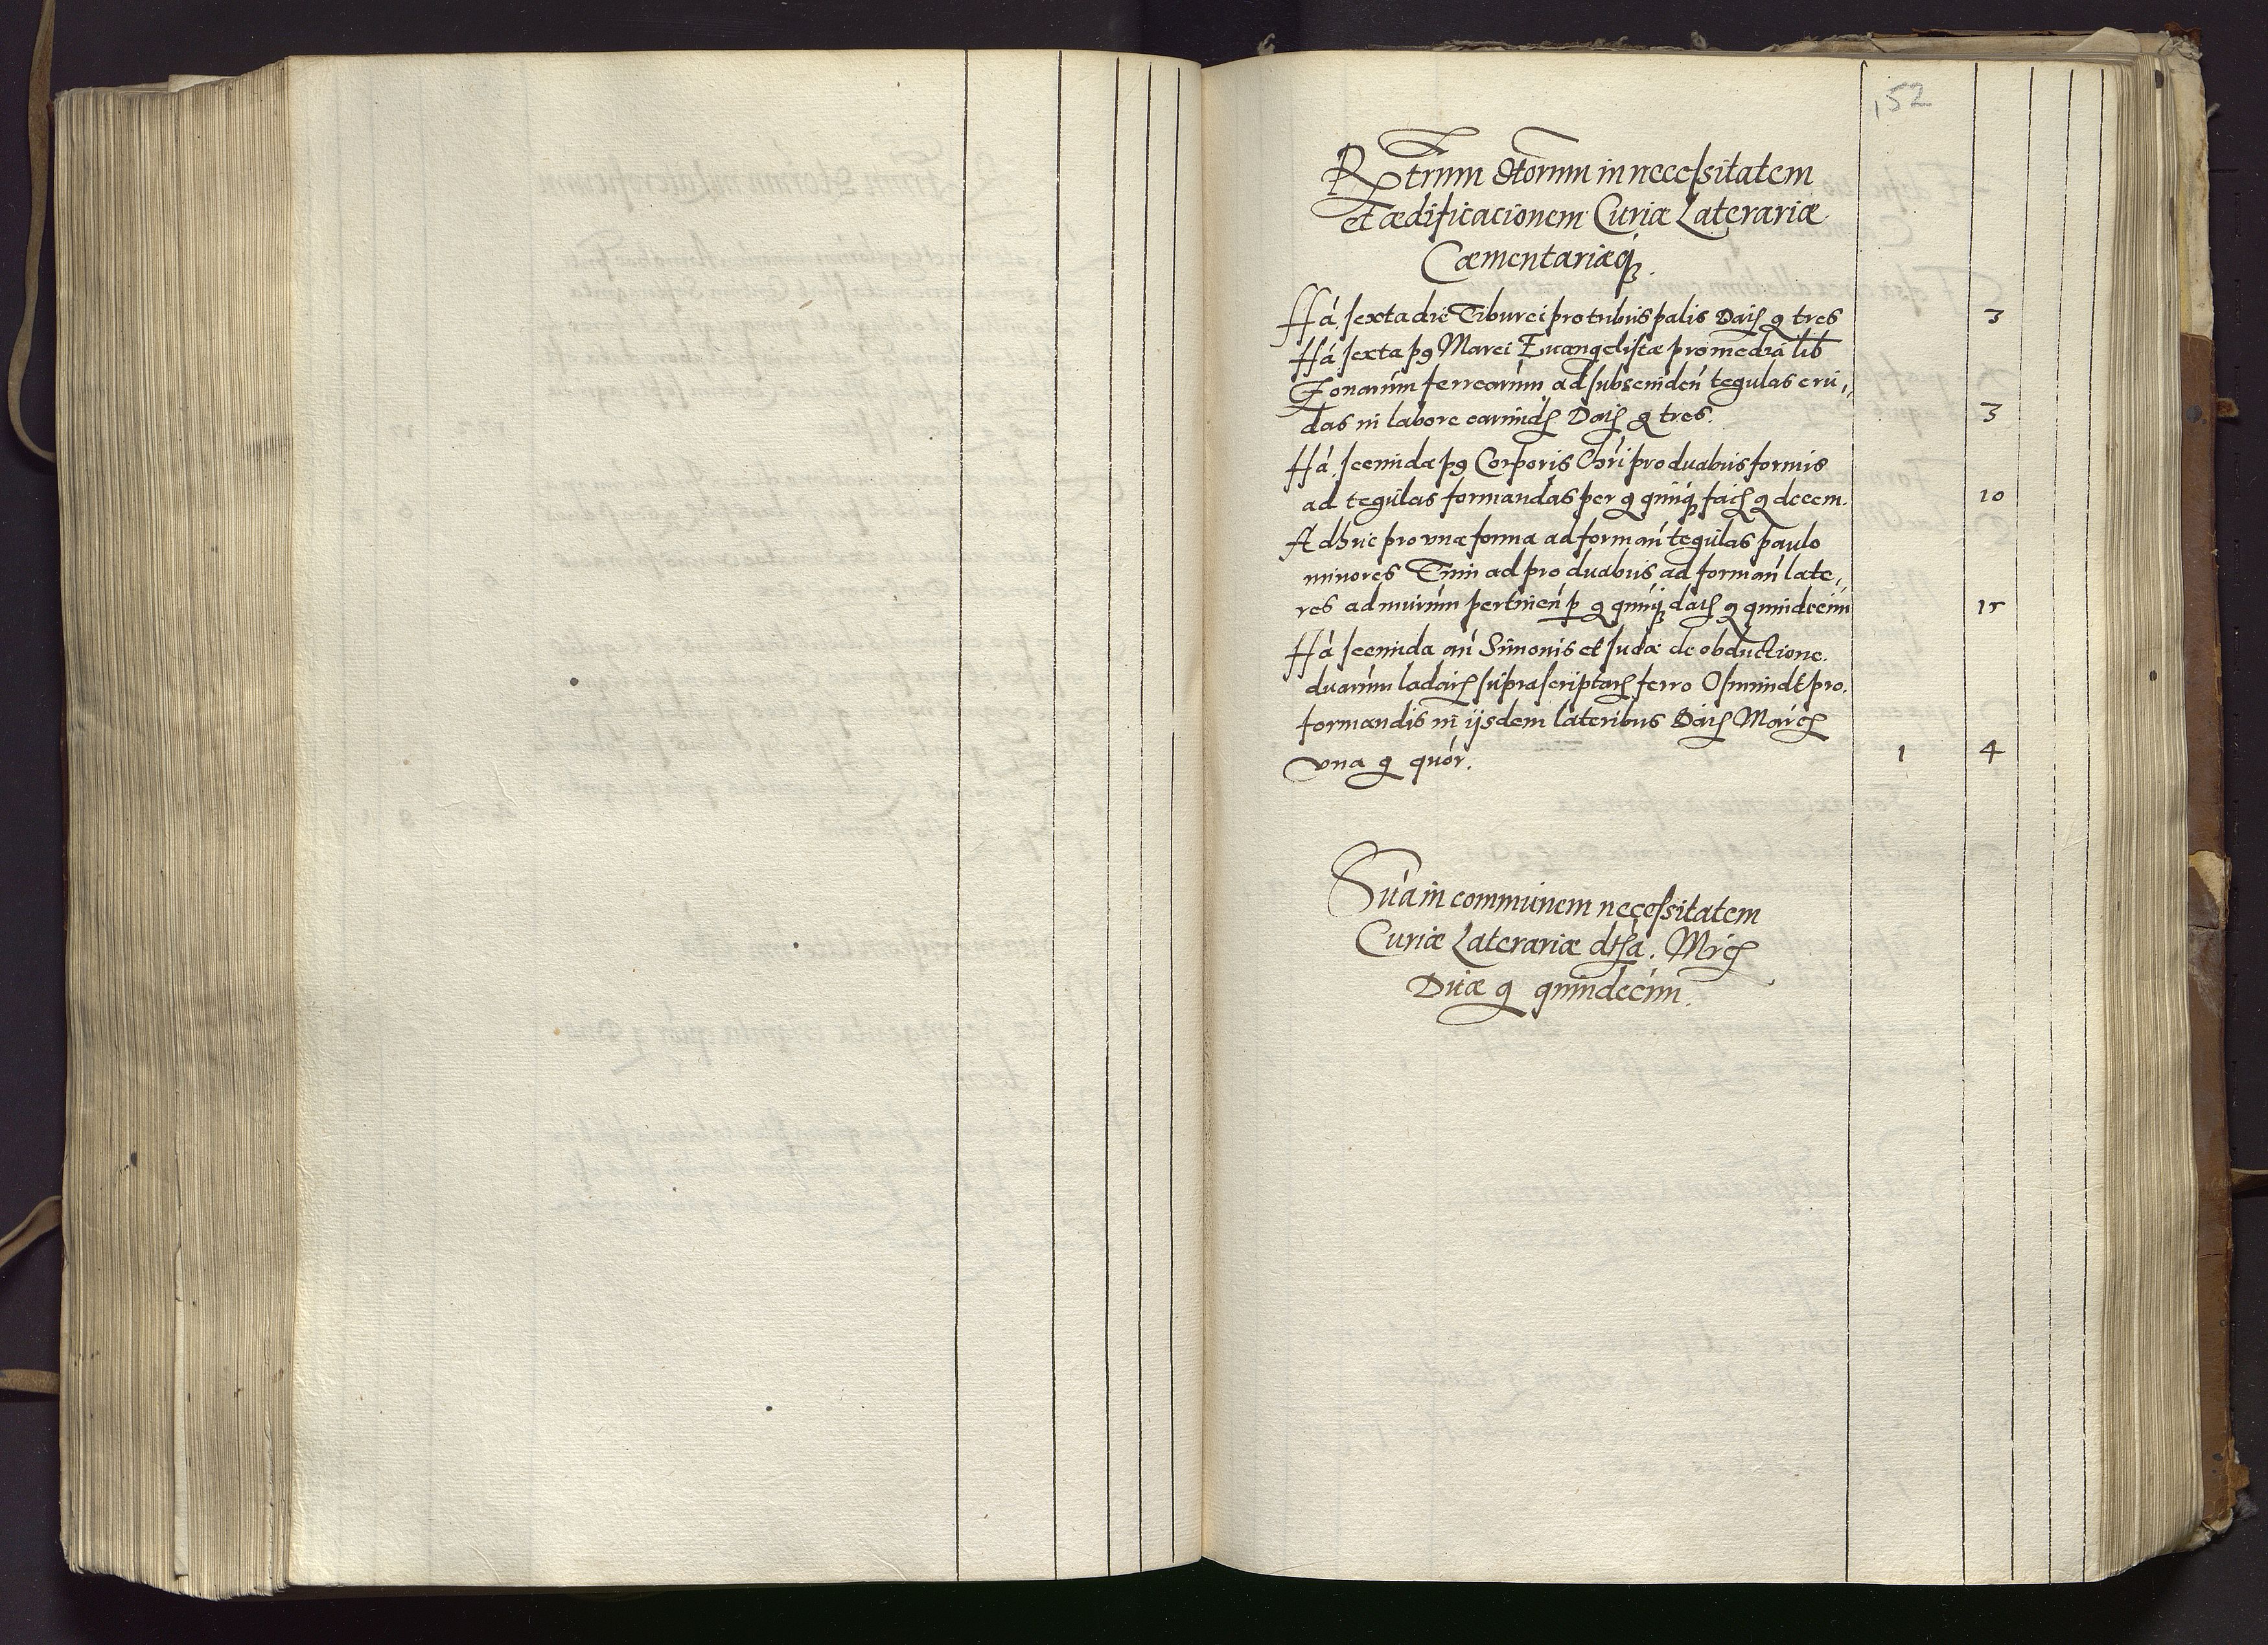 152
Rgtrum Dtorum in necessitatem
et ædificacionem Curiæ Laterariæ
Cæmentariæq;
Ha. sexta die Tiburci pro tribus palis Daīs g tres 3
Ha sexta pg Marci Evangelistæ pro media lib
Zonarum ferrearum ad subscinden tegulas cru,,
das in labore earund Daīs g tres. 3
Ha. secunda pg Corporis Chri pro duabus formis
ad tegulas formandas per g quinq; faīs g decem. 10
Adhuc pro una forma ad forman tegulas paulo
minores Trin ad pro duabus ad forman late,,
res ad murum pertinen p g quinq; daīs g quindecim 15
Ha secunda an Simonis et Judæ de obductione.
duarum ladarʒ suprascriptarʒ ferro Osmundt pro.
formandis in ijsdem lateribus Daīs Marcʒ
una g quor. 1 4
Sua in communem necessitatem
Curiæ Laterariæ dtha. Mrcʒ
Duæ g quindecim.